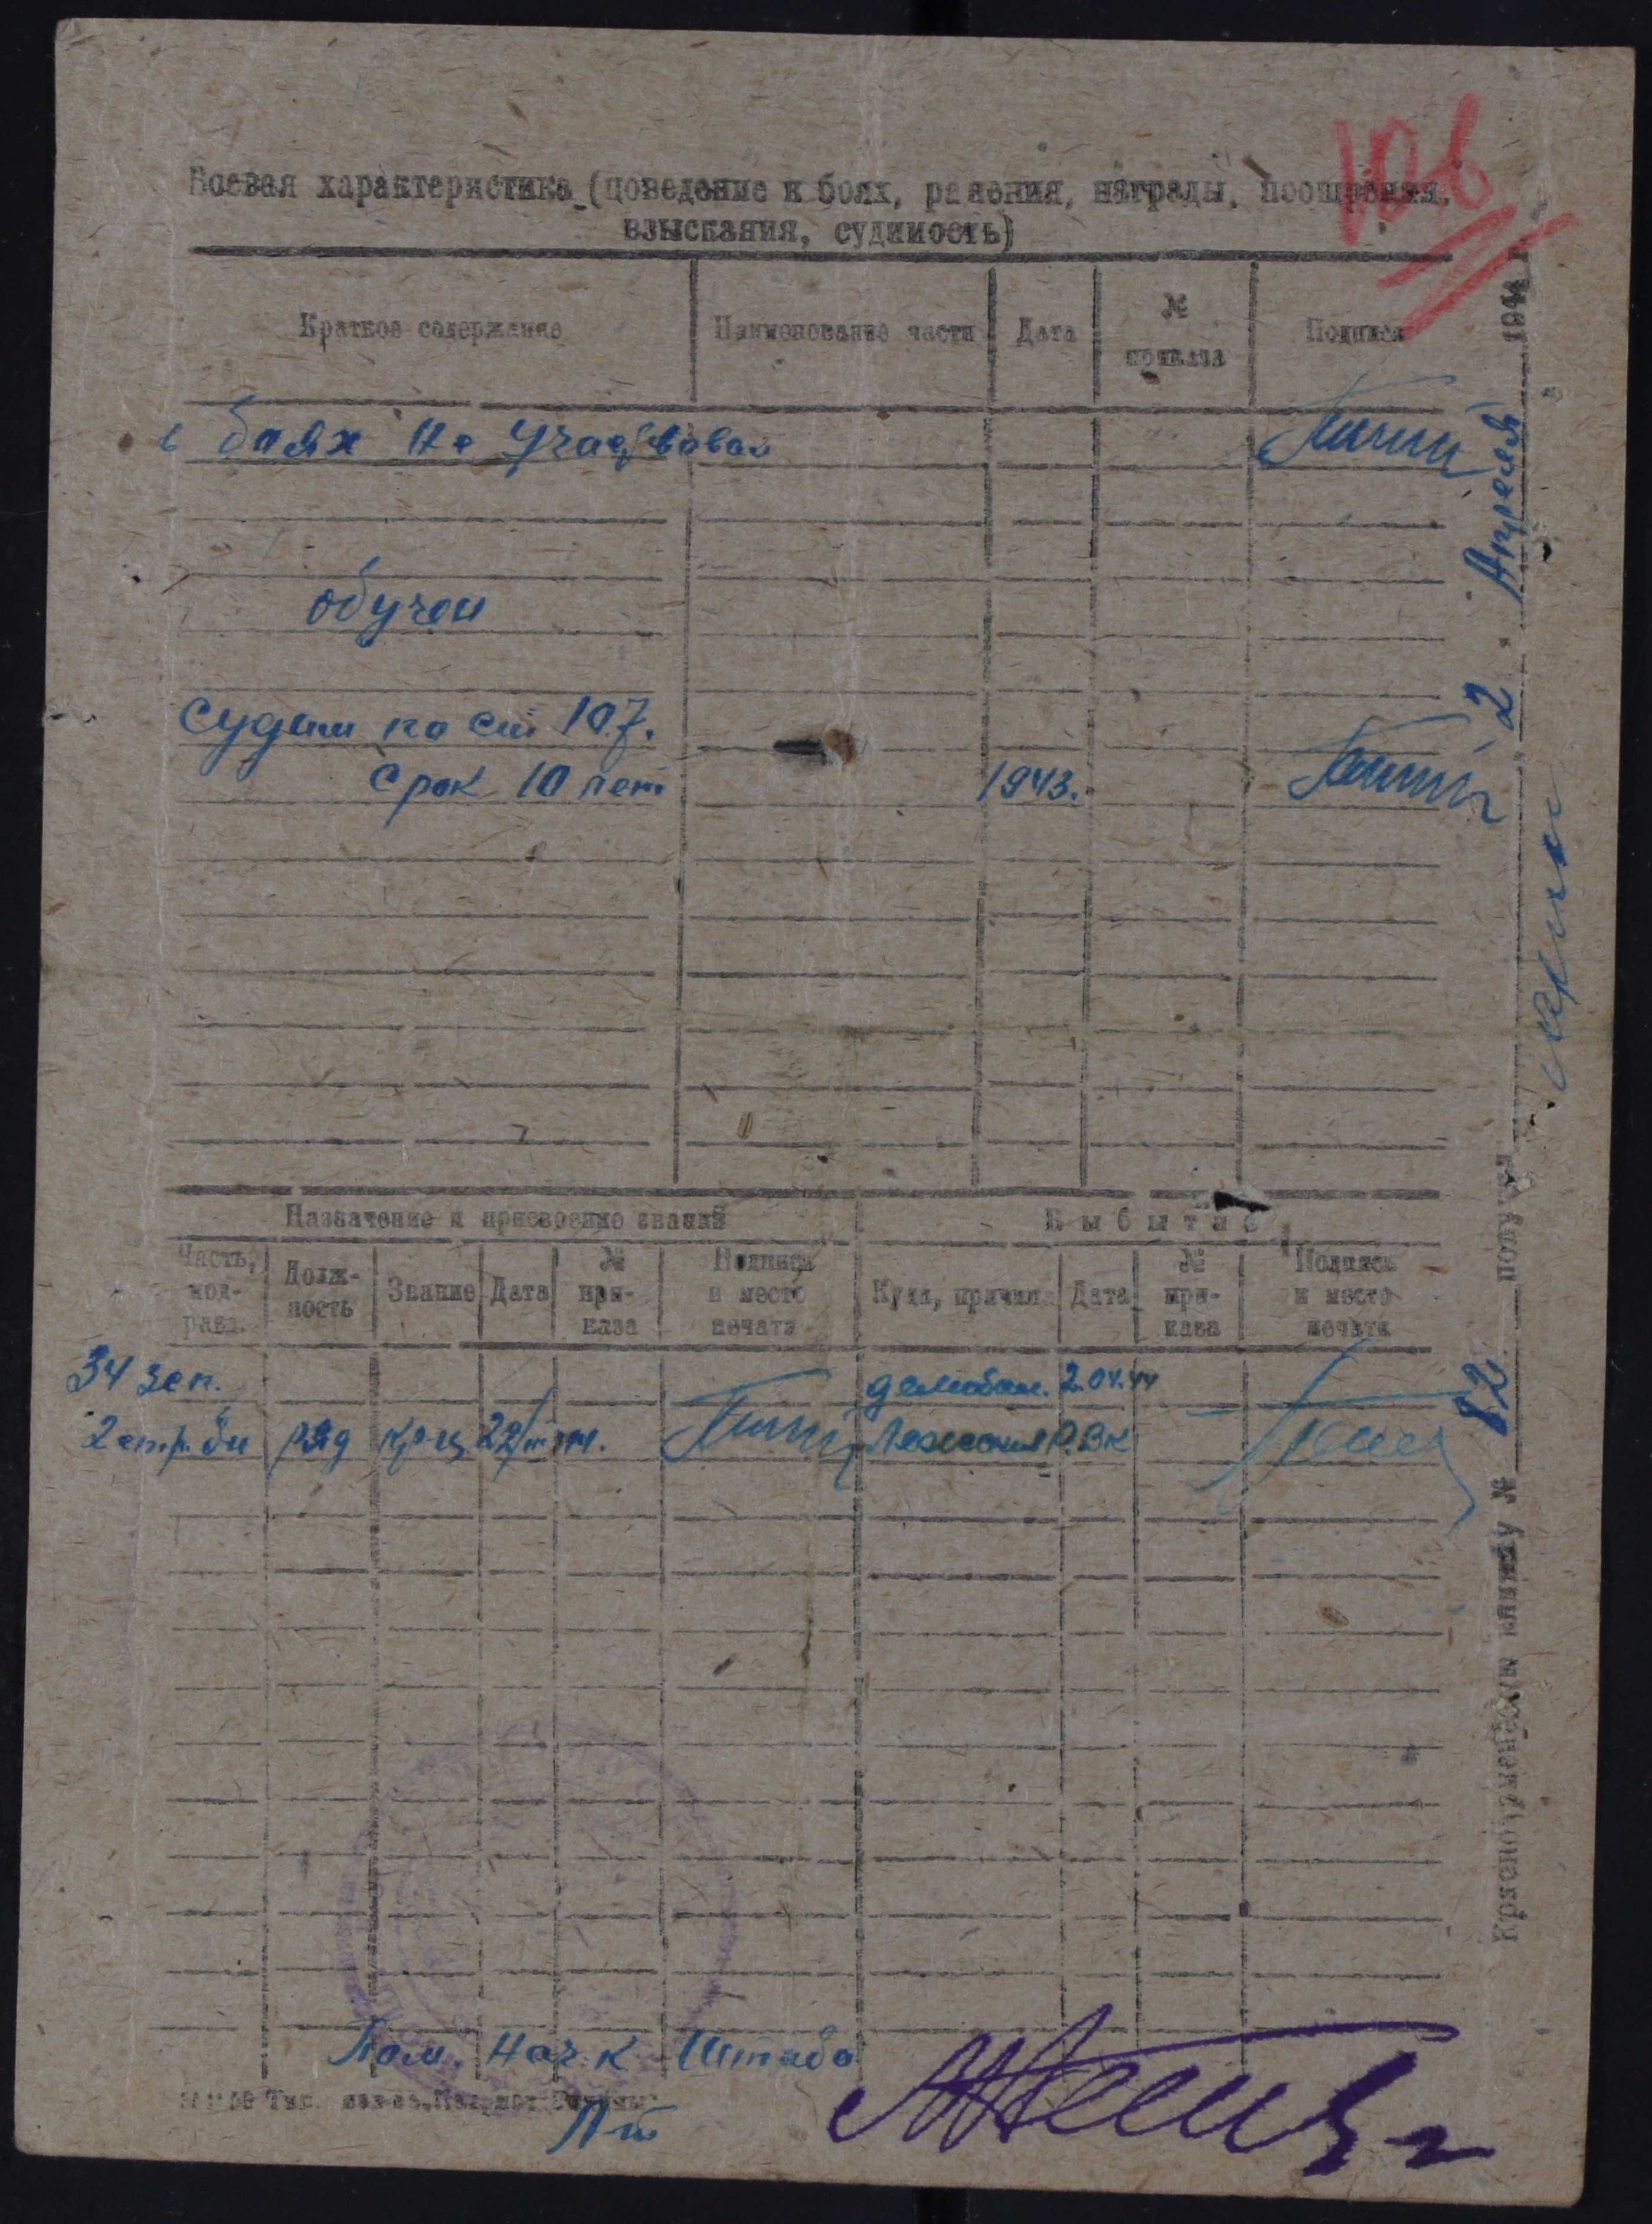 106
Боевая характеристика (поведение в боях, ранения, награды, поощрения,
взыскания, судимость)
Краткое содержание
Наименование части
Дата
№
приказа
Подпись
в боях не участвовал
обучен
Судим по ст 107.
Срок 10 лет
1943.
Назначение и присвоение званий
Выбытие
Часть,
под-
разд.
Долж-
ность
Звание
Дата
№
при-
каза
Подпись
и место
печати
Куда, причина
Дата
№
при-
каза
Подпись
и место
печати
34 зап.
2.04.44
2 стр. бн
ряд
кр-ц
РВК
Пом. Нач-к Штаба
Л-т
Красноармейскую книжку № 82 получил
2 Апреля 1944 г.